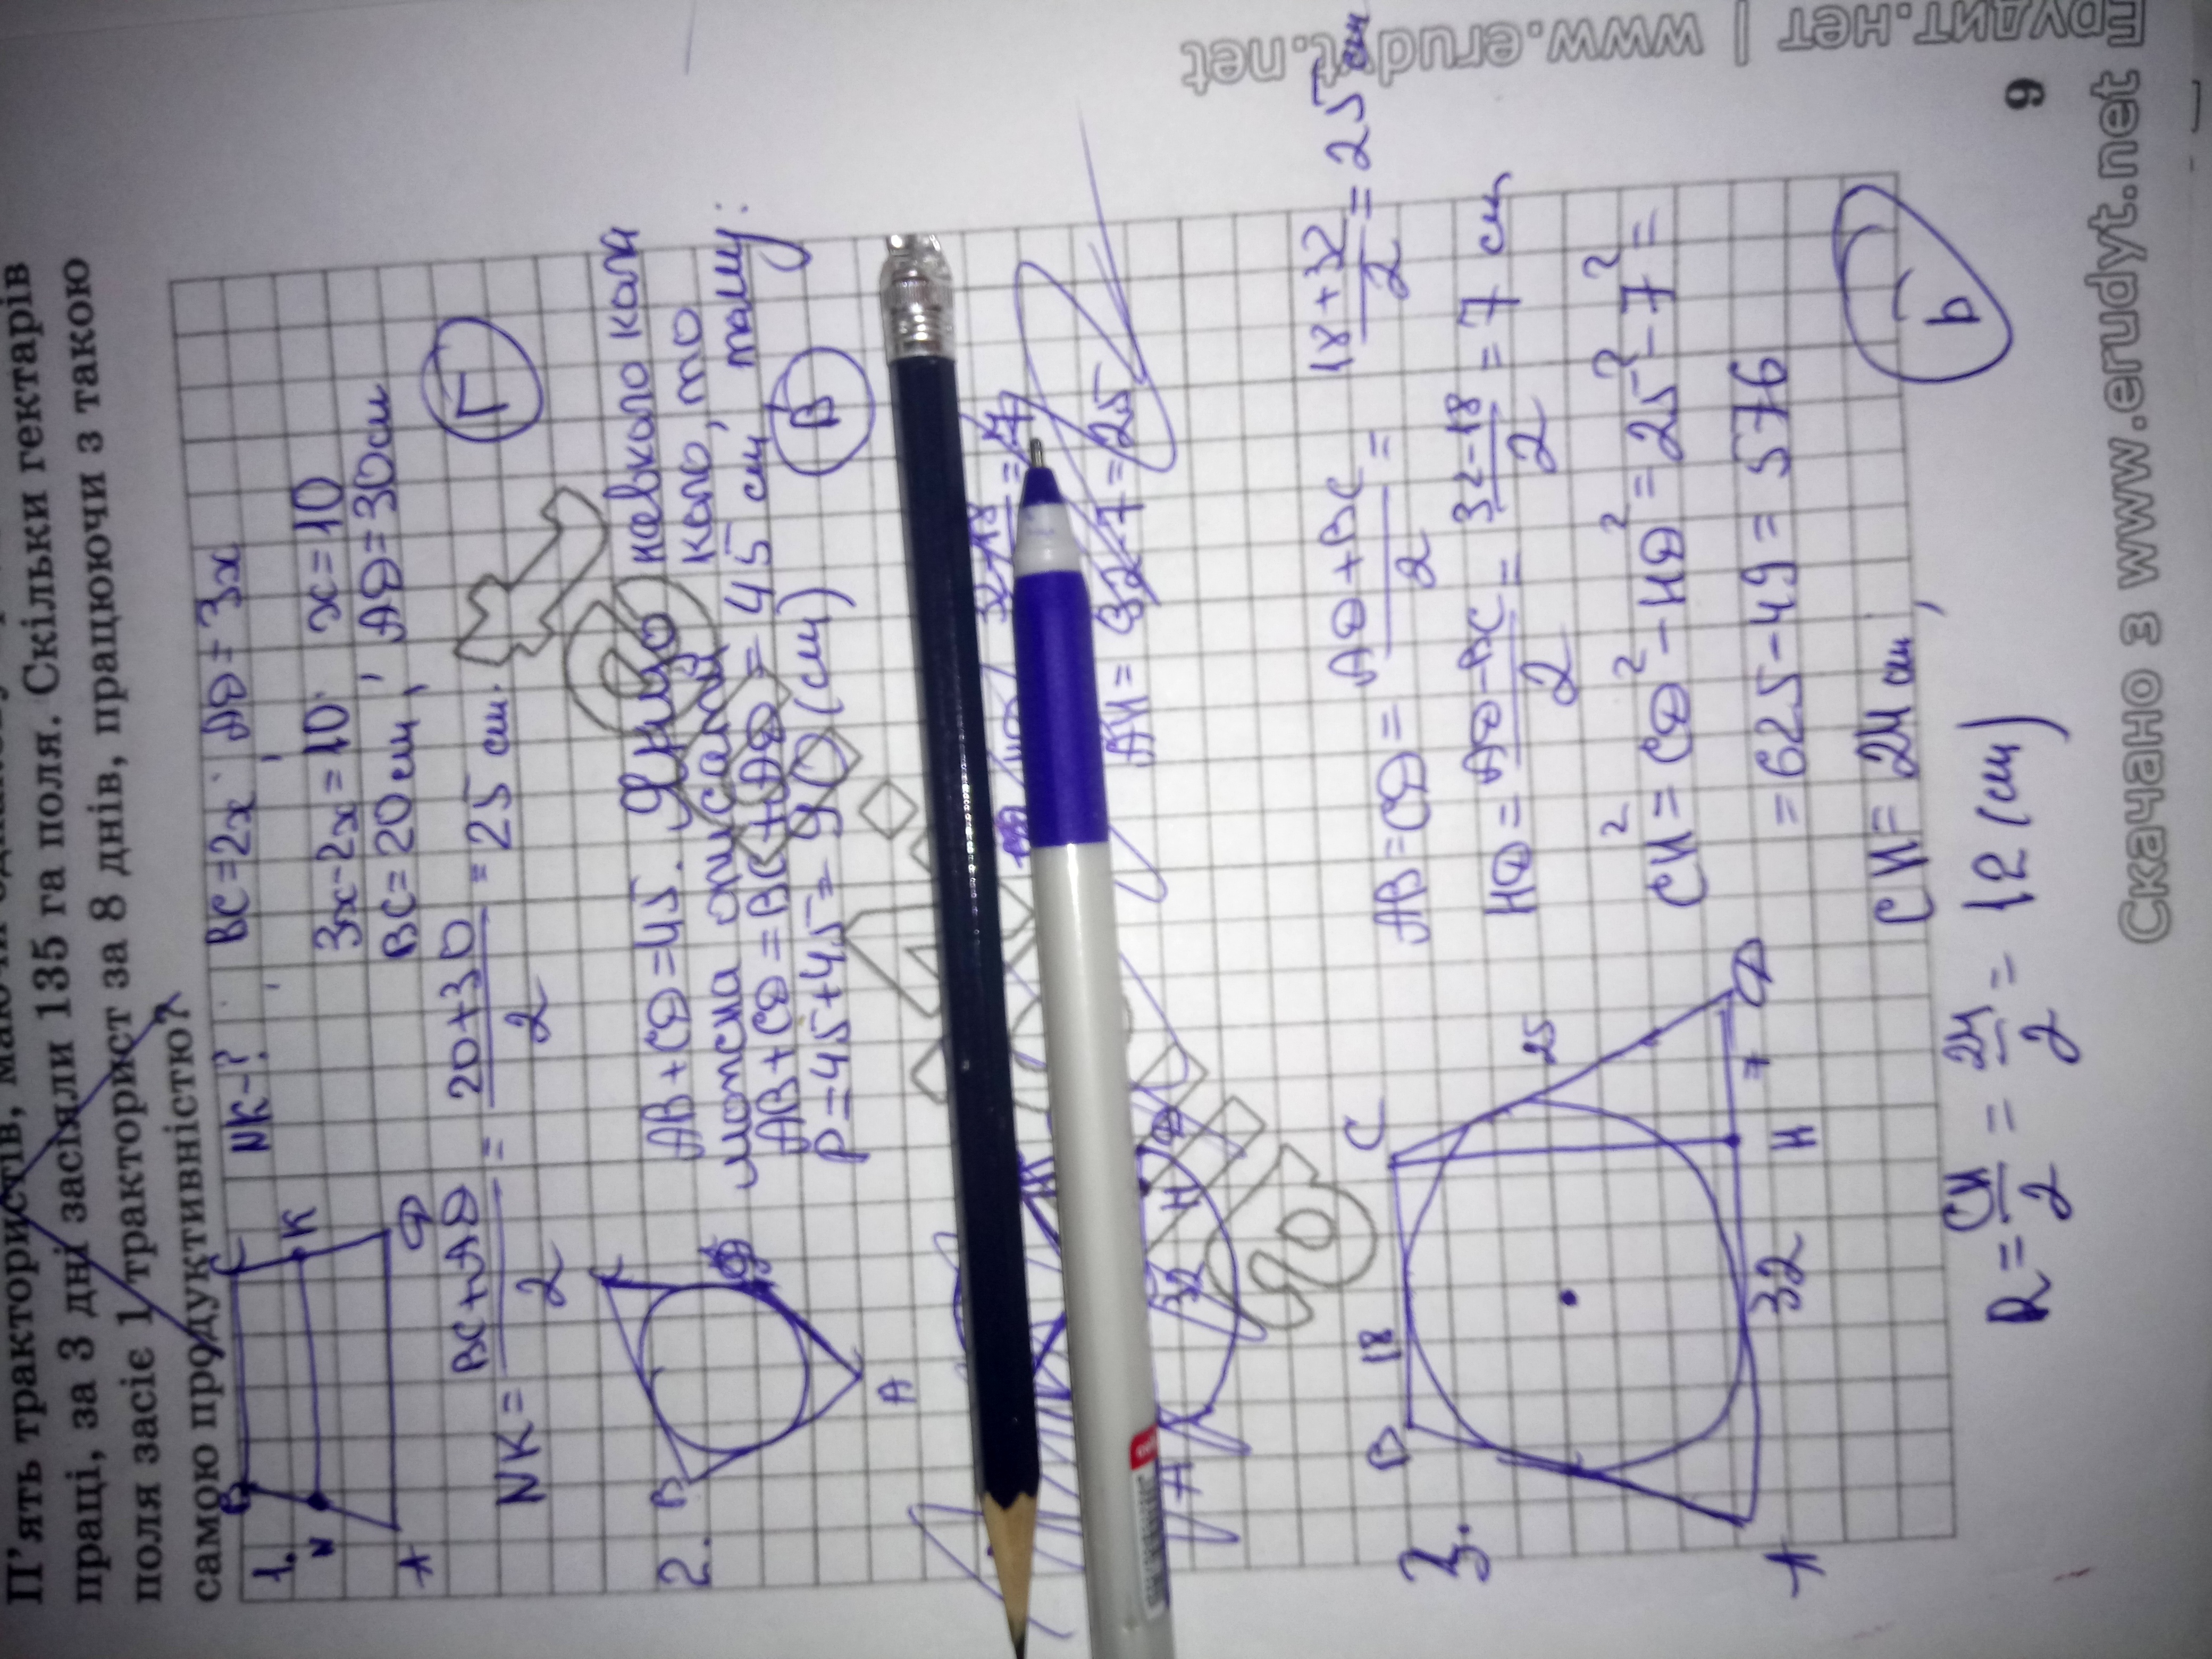 П'ять трактористів, маючи
праці, за 3 дні засіяли 135 га поля. Скільки гектарів
поля засіє 1 тракторист за 8 днів, працюючи з такою
самою продуктивністю?
1. B C N K A D
NK-? BC=2x; AD=3x
3x-2x=10; x=10
BC=20 см; AD=30 см
NK = BC+AD/2 = 20+30/2 = 25 см.
Г
2. B C D A
AB+CD=45. Якщо навколо кола
можна описати коло, то
AB+CD=BC+AD=45 см, тому:
P=45+45=90(см)
В
32-18
AH= 32-7=25
A 32 H D
3. B 18 C 25 D 7 H 32 A
AB=CD= AD+BC/2 = 18+32/2 = 25 см
HD= AD-BC/2 = 32-18/2 = 7 см
CH²=CD²-HD²=25²-7²=
=625-49=576
CH=24 см,
R= CH/2 = 24/2 = 12(см)
Б
9
Скачано з www.erudyt.net
Ерудит.нет | www.erudyt.net